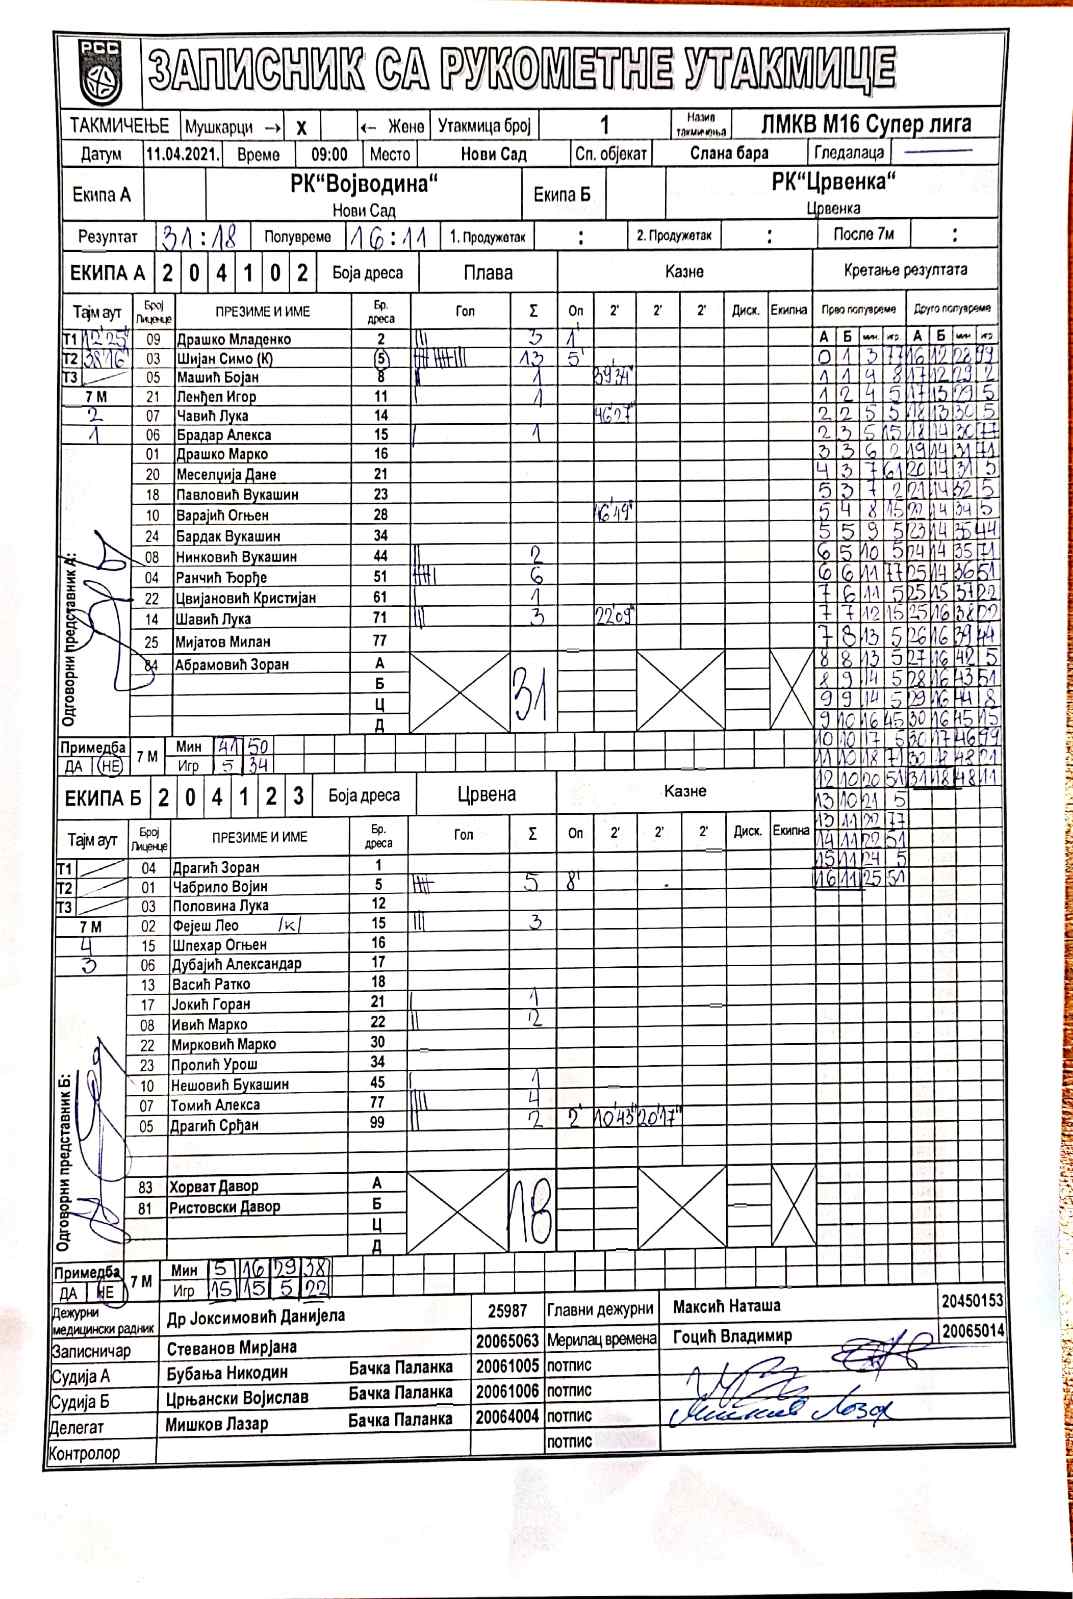 РСС
ЗАПИСНИК СА РУКОМЕТНЕ УТАКМИЦЕ
ТАКМИЧЕЊЕ Мушкарци → X ← Жене Утакмица број 1 Назив такмичења ЛМКВ М16 Супер лига
Датум 11.04.2021. Време 09:00 Место Нови Сад Сп. објекат Слана бара Гледалаца
Екипа А РК“Војводина“ Нови Сад Екипа Б РК“Црвенка“ Црвенка
Резултат 31:18 Полувреме 16:11 1. Продужетак : 2. Продужетак : После 7м :
ЕКИПА А 2 0 4 1 0 2 Боја дреса Плава Казне Кретање резултата
Тајм аут Број Лиценце ПРЕЗИМЕ И ИМЕ Бр. дреса Гол Σ Оп 2' 2' 2' Диск. Екипна Прво полувреме Друго полувреме
А Б мин. игр. А Б мин. игр.
Т1 12'25" 09 Драшко Младенко 2 3 1'
Т2 38'16" 03 Шијан Симо (К) 5 13 5'
Т3 05 Машић Бојан 8 1 39'34"
7 М 21 Ленђел Игор 11 1
2 07 Чавић Лука 14 46'27"
1 06 Брадар Алекса 15 1
01 Драшко Марко 16
20 Меселџија Дане 21
18 Павловић Вукашин 23
10 Варајић Огњен 28 16'49"
24 Бардак Вукашин 34
08 Нинковић Вукашин 44 2
04 Ранчић Ђорђе 51 6
22 Цвијановић Кристијан 61 1
14 Шавић Лука 71 3 22'09"
25 Мијатов Милан 77
84 Абрамовић Зоран А
Б
Ц
Д
31
Одговорни представник А:
0 1 3 77 16 12 28 99
1 1 4 8 17 12 29 2
1 2 4 5 17 13 29 5
2 2 5 5 18 13 30 5
2 3 5 15 18 14 30 77
3 3 6 2 19 14 31 71
4 3 7 61 20 14 31 5
5 3 7 2 21 14 32 5
5 4 8 15 22 14 34 5
5 5 9 5 23 14 35 44
6 5 10 5 24 14 35 71
6 6 11 77 25 14 36 51
7 6 11 5 25 15 37 22
7 7 12 15 25 16 38 22
7 8 13 5 26 16 39 44
8 8 13 5 27 16 42 5
8 9 14 5 28 16 43 51
9 9 14 5 29 16 44 8
9 10 16 45 30 16 45 15
10 10 17 5 30 17 46 99
11 10 18 71 30 18 48 21
12 10 20 51 31 18 48 11
13 10 21 5
13 11 22 77
14 11 22 51
15 11 24 5
16 11 25 51
Примедба ДА НЕ 7 М Мин 41 50
Игр 5 34
ЕКИПА Б 2 0 4 1 2 3 Боја дреса Црвена Казне
Тајм аут Број Лиценце ПРЕЗИМЕ И ИМЕ Бр. дреса Гол Σ Оп 2' 2' 2' Диск. Екипна
Т1 04 Драгић Зоран 1
Т2 01 Чабрило Војин 5 5 8'
Т3 03 Половина Лука 12
7 М 02 Фејеш Лео /к/ 15 3
4 15 Шпехар Огњен 16
3 06 Дубајић Александар 17
13 Васић Ратко 18
17 Јокић Горан 21 1
08 Ивић Марко 22 2
22 Мирковић Марко 30
23 Пролић Урош 34
10 Нешовић Букашин 45 1
07 Томић Алекса 77 4
05 Драгић Срђан 99 2 2' 10'43" 20'17"
83 Хорват Давор А
81 Ристовски Давор Б
Ц
Д
18
Одговорни представник Б:
Примедба ДА НЕ 7 М Мин 5 16 29 38
Игр 15 15 5 22
Дежурни медицински радник Др Јоксимовић Данијела 25987 Главни дежурни Максић Наташа 20450153
Записничар Стеванов Мирјана 20065063 Мерилац времена Гоцић Владимир 20065014
Судија А Бубања Никодин Бачка Паланка 20061005 потпис
Судија Б Црњански Војислав Бачка Паланка 20061006 потпис
Делегат Мишков Лазар Бачка Паланка 20064004 потпис Мишков Лазар
Контролор потпис